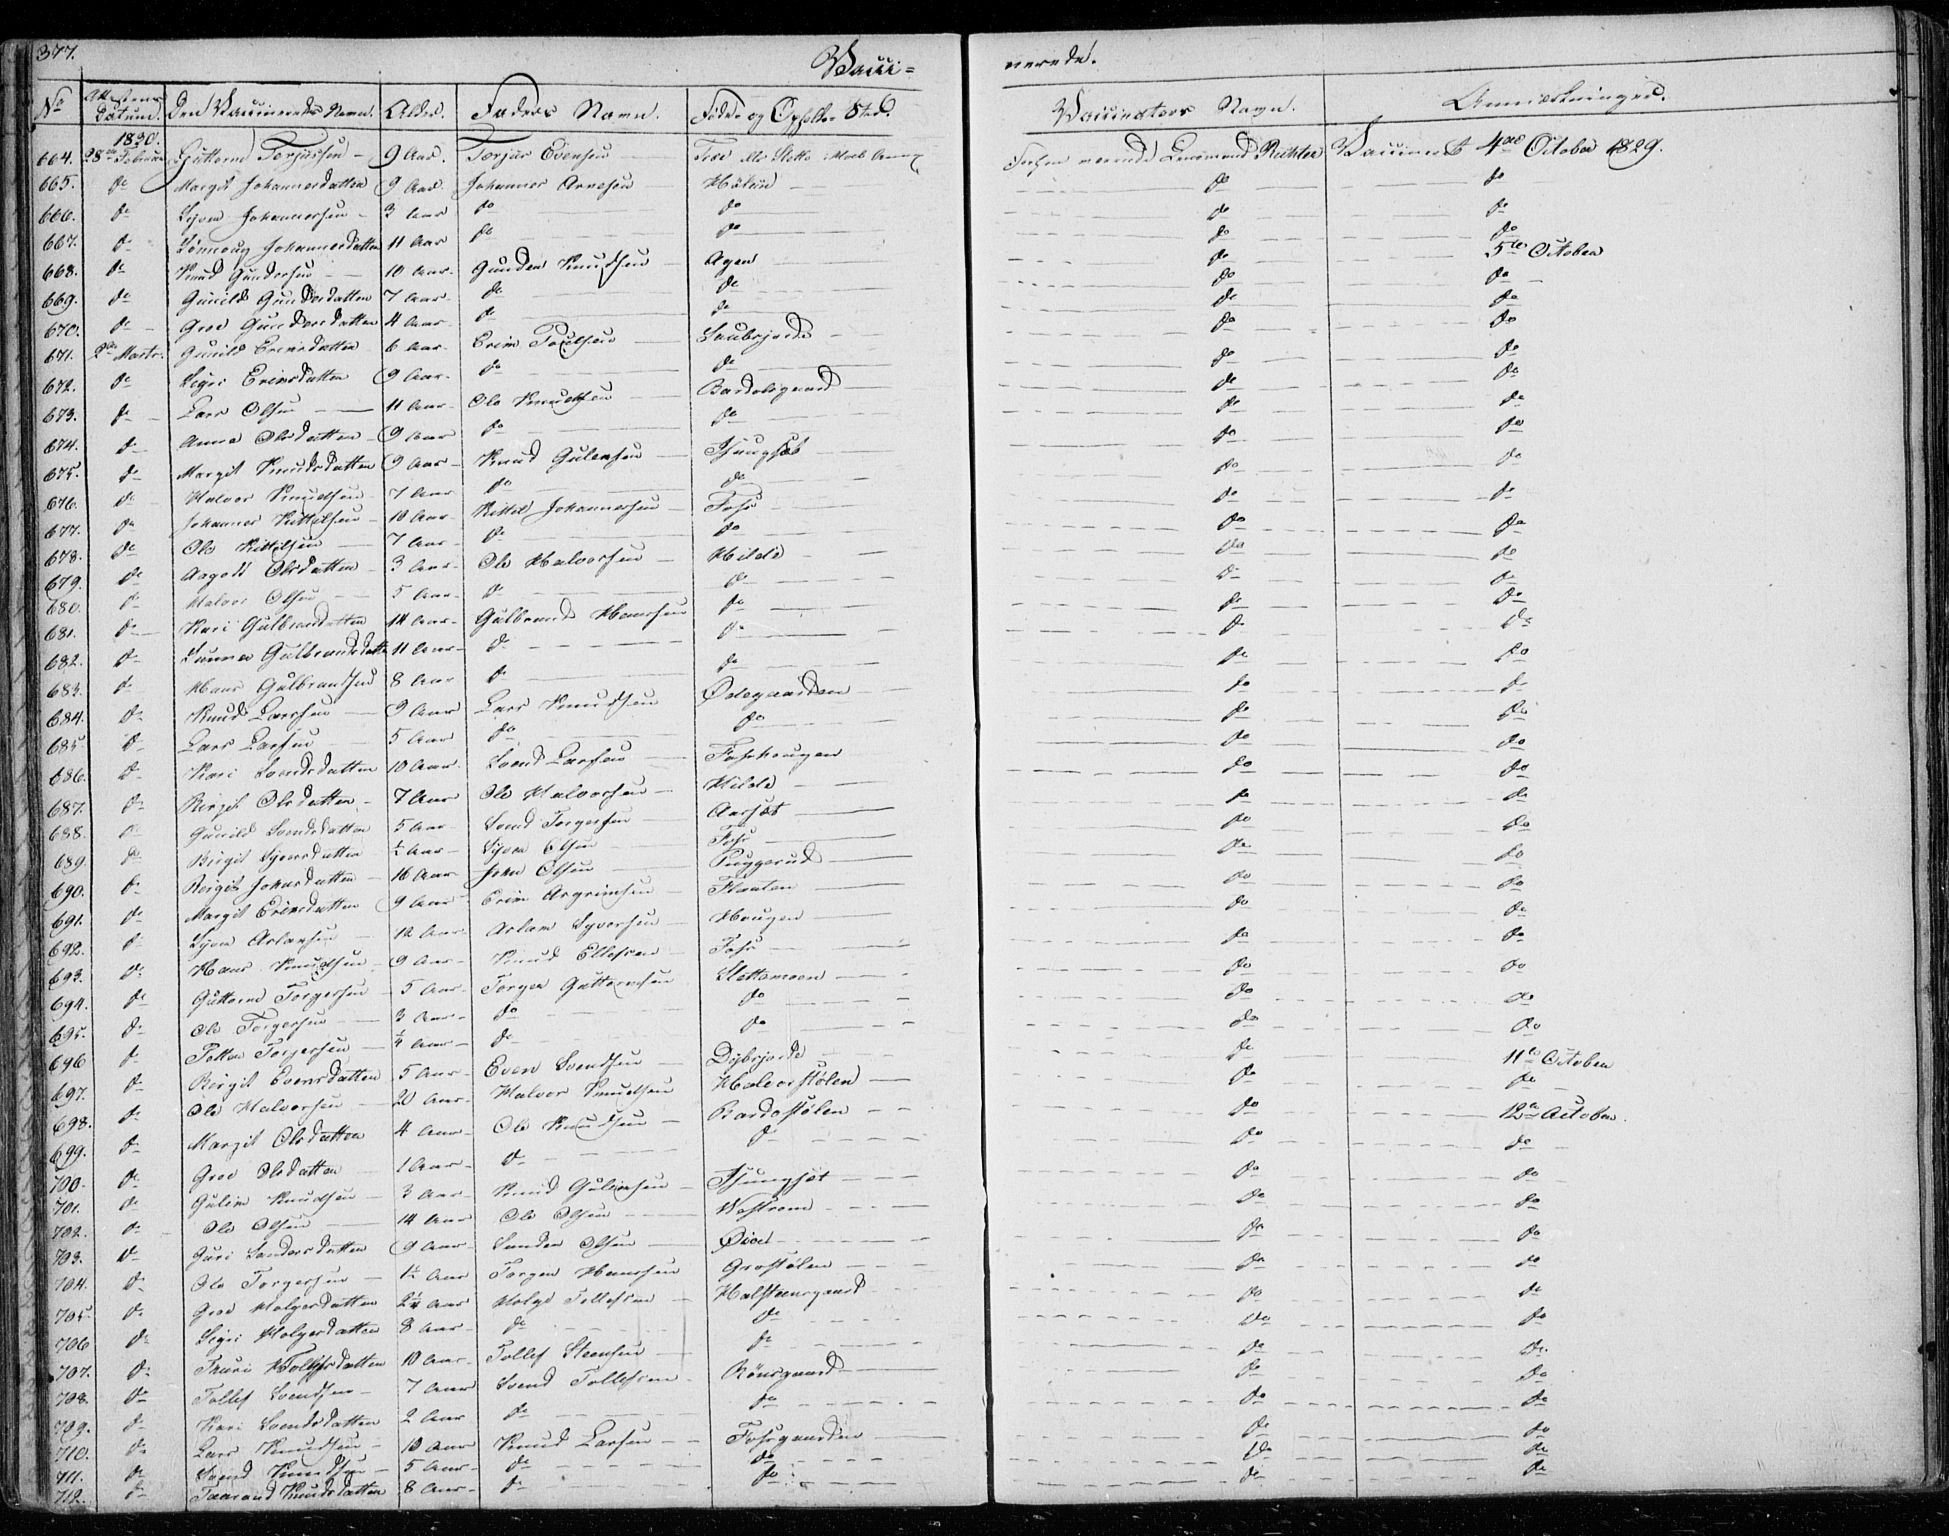 377. Vacci= nerede.
No Attestens Datum. Den Vaccineredes Navn. Alder. Faders Navn. Føde- og Opholds-Sted. Vaccinateurs Navn. Anmærkninger.
1830.
664. 28de Februar Guttorm Torjussen 9 Aar. Torjus Evensen forhenværende Lensmand Richter Vaccineret 4de October 1829.
665. do Margit Johannesdatter 9 Aar. Johannes Arnesen do do
666. do Syver Johannessen 3 Aar do do do do
667. do Lønnoug Johannesdatter 11 Aar do do do do
668. do Knud Gundersen 10 Aar. Gunder Knudsen Agen do 5te October
669. do Gunild Gundersdatter 7 Aar. do do do do
670. do Groe Gundersdatter 4 Aar. do do do do
671. 2den Marts. Gunild Eriksdatter 6 Aar. Paulsen do do
672. do Sigri 9 Aar. do do do do
673. do Lars Olsen 11 Aar Ole Knudsen Bardolsgaard do do
674. do Anne Olsdatter 9 Aar do do do do
675. do Margit Knudsdatter 9 Aar Knud Guleksen do do
676. do Halvor Knudsen 7 Aar do do do do
677. do Johannes Kittelsen 10 Aar Kittel Johannessen Foss do do
678. do Ole Kittelsen 7 Aar do do do do
679. do Aagodt Olsdatter 3 Aar Ole Halvorsen Hilde do do
680. do Halvor Olsen 5 Aar do do do do
681. do Kari Gulbrandsdatter 14 Aar Gulbrand Hansen do do do
682. do Gunner Gulbrandsdatter 11 Aar do do do do
683. do Hans Gulbrandsen 8 Aar do do do do
684. do Knud Larsen 9 Aar Lars Knudsen Ødegaarden do do
685 do Lars Larsen 5 Aar do do do do
686. do Kari Svendsdatter 10 Aar Svend Larsen Fosshougen do do
687. do Birgit Olsdatter 7 Aar Ole Halvorsen Hilde do do
688. do Gunild Svendsdatter 5 Aar Svend Torgersen do do
689. do Birgit Syversdatter ½ Aar Syver Olsen Foss do do
690. do Birgit Johnsdatter 16 Aar John Olsen Puggerud do do
691. do Margit 9 Aar Flaaten do do
692. do Syver 12 Aar Syversen Hougen do do
693. do Hans Knudsen 9 Aar Knud Ellefsen Foss do do
694. do Guttorm Torgersen 5 Aar Torger Guttormsen Slettemoen do do
695. do Ole Torgersen 3 Aar do do do do
696 do Petter Torgersen Aar do do do do
697. do Birgit Evensdatter 5 Aar Even Svendsen do 11te October
698. do Ole Halvorsen 20 Aar Halvor Knudsen Halvorstølen do do
699. do Margit Olsdatter 4 Aar Ole Knudsen Bardostølen do 12te October.
700. do Groe Olsdatter 1 Aar do do do do
701. do Gulik Knudsen 3 Aar Knud Guleksen do do
702. do Ole Olsen 14 Aar Ole Olsen do do
703. do Guri Sandersdatter 9 Aar Sander Olsen Øien do do
704. do Ole Torgersen 1½ Aar Torger Hansen Grostølen do do
705 do Groe Holgersdatter 2¼ Aar Holge Tollefsen Halsteensgaard do do
706 do Sigri Holgersdatter 8 Aar do do do do
707. do Thuri Tollefsdatter 10 Aar Tollef Steensen do do do
708. do Tollef Svendsen 7 Aar Svend Tollefsen do do
709. do Kari Svendsdatter 2 Aar do do do do
710. do Lars Knudsen 10 Aar Knud Larsen Fossgaarden do do
711. do Svend Knudsen 5 Aar do do do do
712. do Taarand Knudsdatter 8 Aar do do do do